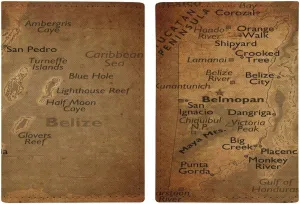 Ambergris
Caye
San Pedro
Turneffe
Islands
Blue Hole
Lighthouse Reef
Half Moon
Caye
Belize
Glovers
Reef
YUCATAN
PENINSULA
Corozal
Hondo
River
Orange
Walk
Shipyard
Crooked
Tree
Lamanai
Belize
River
Belize
City
Belmopan
San
Ignacio
Dangriga
Chiquibul
N.P.
Victoria
Peak
Maya Mts.
Big
Creek
Placenc
Monkey
River
Punta
Gorda
Gulf of
Honduras
River